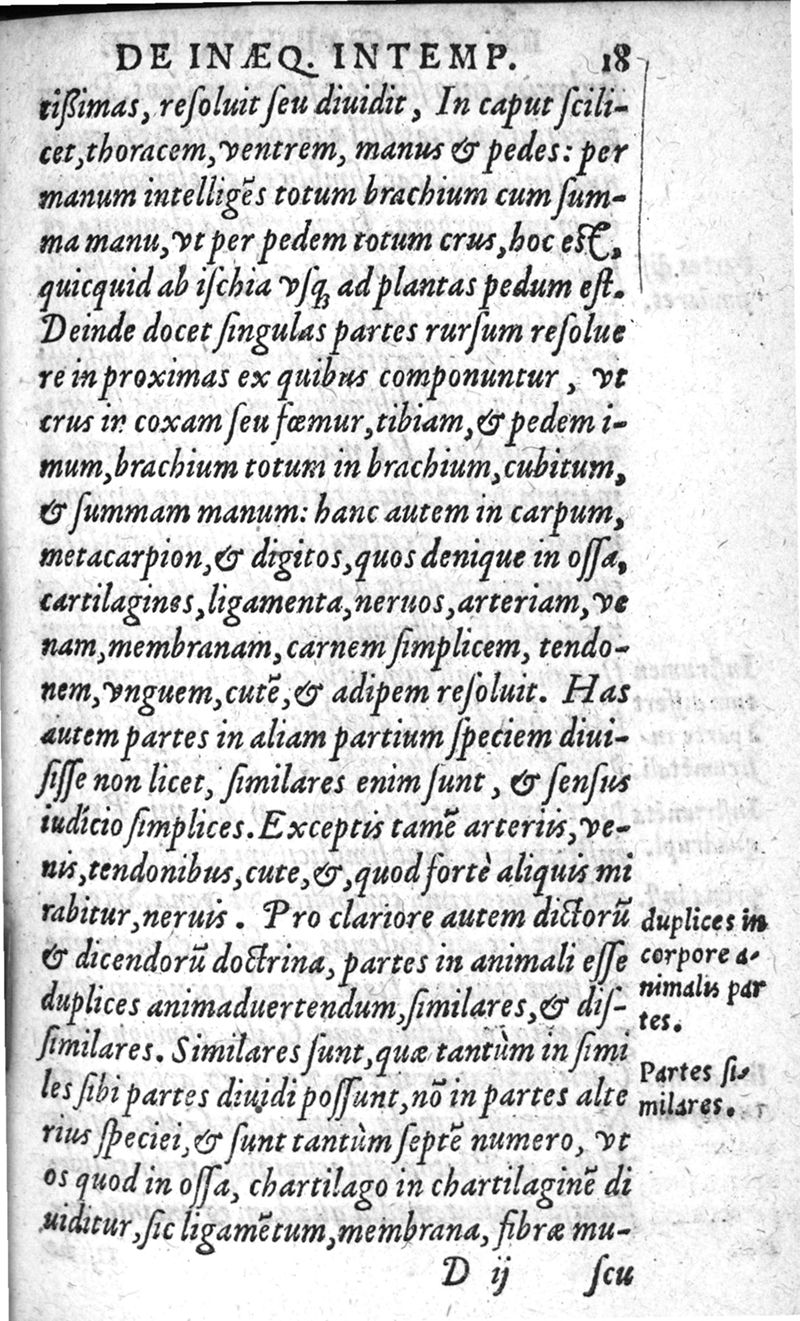 DE INÆQ. INTEMP. 18
tißimas, reſoluit ſeu diuidit, In caput ſcili-
cet, thoracem, ventrem, manus & pedes: per
manum intelligẽs totum brachium cum ſum-
ma manu, vt per pedem totum crus, hoc eſt,
quicquid ab iſchia vſq; ad plantas pedum eſt.
Deinde docet ſingulas partes rurſum reſolue
re in proximas ex quibus componuntur, vt
crus in coxam ſeu fœmur, tibiam, & pedem i-
mum, brachium totum in brachium, cubitum,
& ſummam manum: hanc autem in carpum,
metacarpion, & digitos, quos denique in oſſa,
cartilagines, ligamenta, neruos, arteriam, ve
nam, membranam, carnem ſimplicem, tendo-
nem, vnguem, cutẽ, & adipem reſoluit. Has
autem partes in aliam partium ſpeciem diui-
ſiſſe non licet, ſimilares enim ſunt, & ſenſus
iudicio ſimplices. Exceptis tamẽ arteriis, ve-
nis, tendonibus, cute, &, quod fortè aliquis mi
rabitur, neruis. Pro clariore autem dictorũ
& dicendorũ doctrina, partes in animali eſſe
duplices animaduertendum, ſimilares, & diſ-
ſimilares. Similares ſunt, quæ tantùm in ſimi
les ſibi partes diuidi poſſunt, nõ in partes alte
rius ſpeciei, & ſunt tantùm ſeptẽ numero, vt
os quod in oſſa, chartilago in chartilaginẽ di
uiditur, ſic ligamẽtum, membrana, fibræ mu-
D ij ſcu
duplices in
corpore a-
nimalis par
tes.
Partes ſi-
milares.